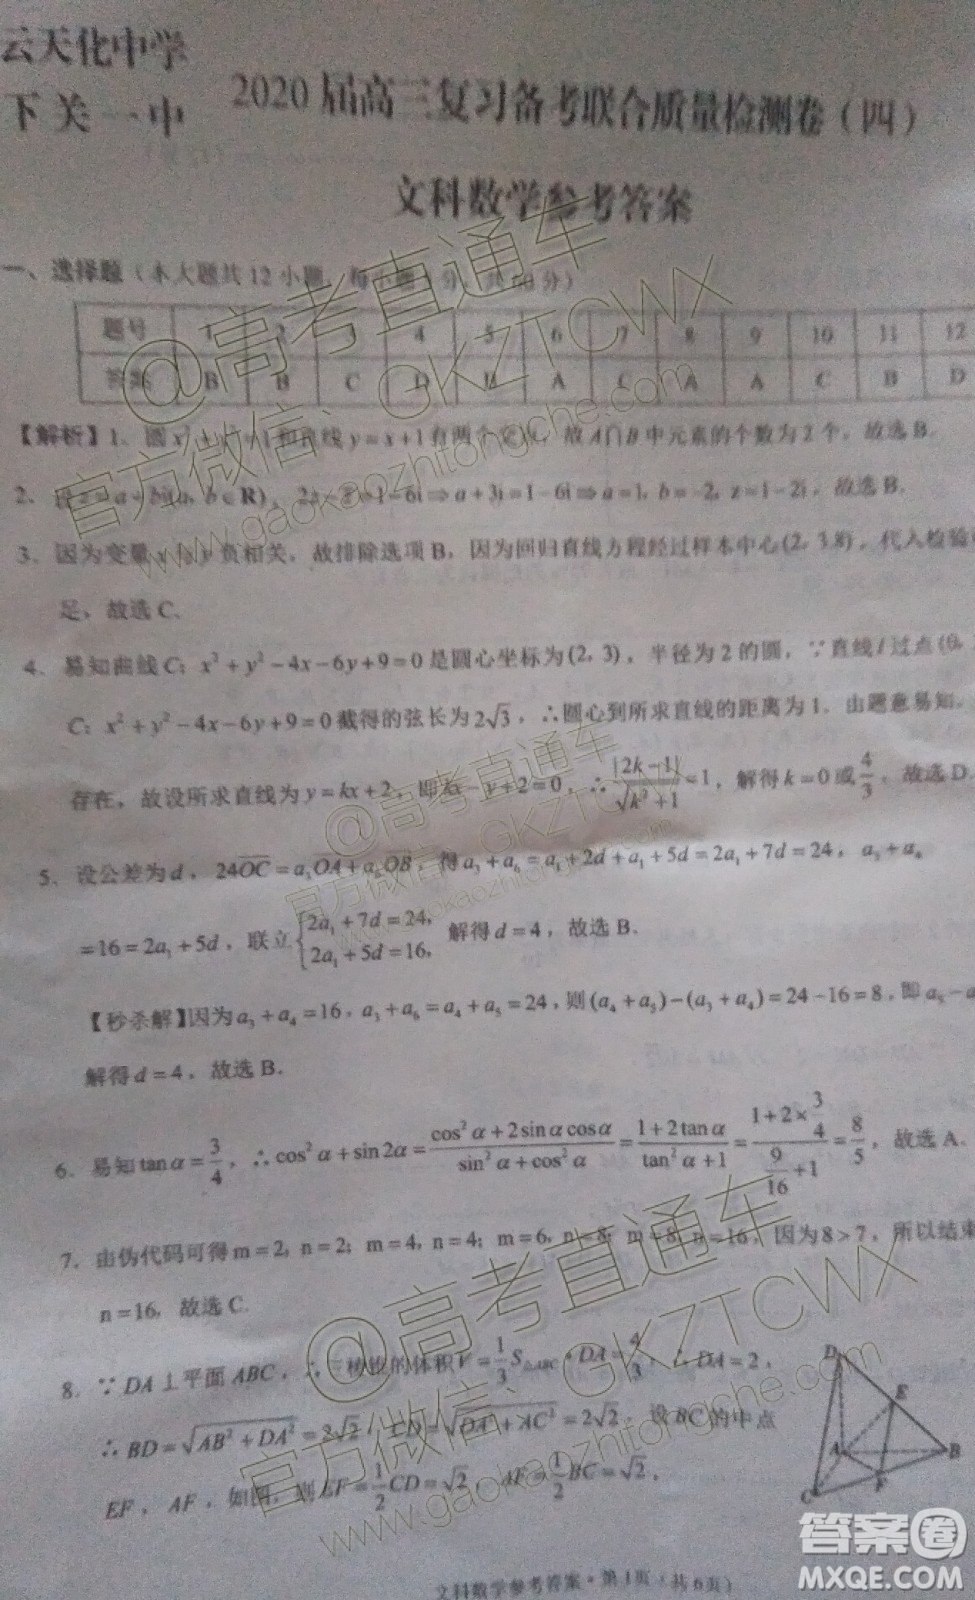 云天化中学
下关一中
2020届高三复习备考联合质量检测卷（四）
文科数学参考答案
一、选择题（本大题共12小题，每小题 分，共60分）
题号 1 2 4 5 6 7 8 9 10 11 12
答案 B B C D B A C A A C B D
【解析】1．圆x²+y²=1和直线y=x+1有两个交点，故A∩B中元素的个数为2个，故选B．
2．设z=a+bi(a，b∈R)，2z-z̄=1-6i⇒a+3i=1-6i⇒a=1，b=-2，z=1-2i，故选B．
3．因为变量x与y负相关，故排除选项B，因为回归直线方程经过样本中心(2，3.8)，代入检验
足，故选C．
4．易知曲线C：x²+y²-4x-6y+9=0是圆心坐标为(2，3)，半径为2的圆，∵直线l过点(0，
C：x²+y²-4x-6y+9=0截得的弦长为2√3，∴圆心到所求直线的距离为1．由题意易知，
存在，故设所求直线为y=kx+2，即kx-y+2=0，∴|2k-1|/√(k²+1)=1，解得k=0或4/3，故选D．
5．设公差为d，24OC=a₃OA+a₆OB，得a₃+a₆=a₁+2d+a₁+5d=2a₁+7d=24，a₃+a₄
=16=2a₁+5d，联立{2a₁+7d=24，2a₁+5d=16，解得d=4，故选B．
【秒杀解】因为a₃+a₄=16，a₃+a₆=a₄+a₅=24，则(a₄+a₅)-(a₃+a₄)=24-16=8，即a₅-a
解得d=4，故选B．
6．易知tanα=3/4，∴cos²α+sin2α=(cos²α+2sinαcosα)/(sin²α+cos²α)=(1+2tanα)/(tan²α+1)=(1+2×3/4)/(9/16+1)=8/5，故选A．
7．由伪代码可得m=2，n=2；m=4，n=4；m=6，n=8；m=8，n=16，因为8>7，所以结束
n=16，故选C．
8．∵DA⊥平面ABC，∴三棱锥的体积V=1/3 S△ABC·DA=4/3，∴DA=2，
∴BD=√(AB²+DA²)=2√2，CD=√(DA²+AC²)=2√2．设BC的中点
EF，AF，如图，则EF=1/2CD=√2，AF=1/2BC=√2，
D
E
A
B
F
C
文科数学参考答案·第1页（共6页）
@高考直通车
官方微信：GKZTCWX
www.gaokaozhitongche.com
@高考直通车
官方微信：GKZTCWX
www.gaokaozhitongche.com
@高考直通车
官方微信：GKZTCWX
www.gaokaozhitongche.com
答案圈
MXQE.COM